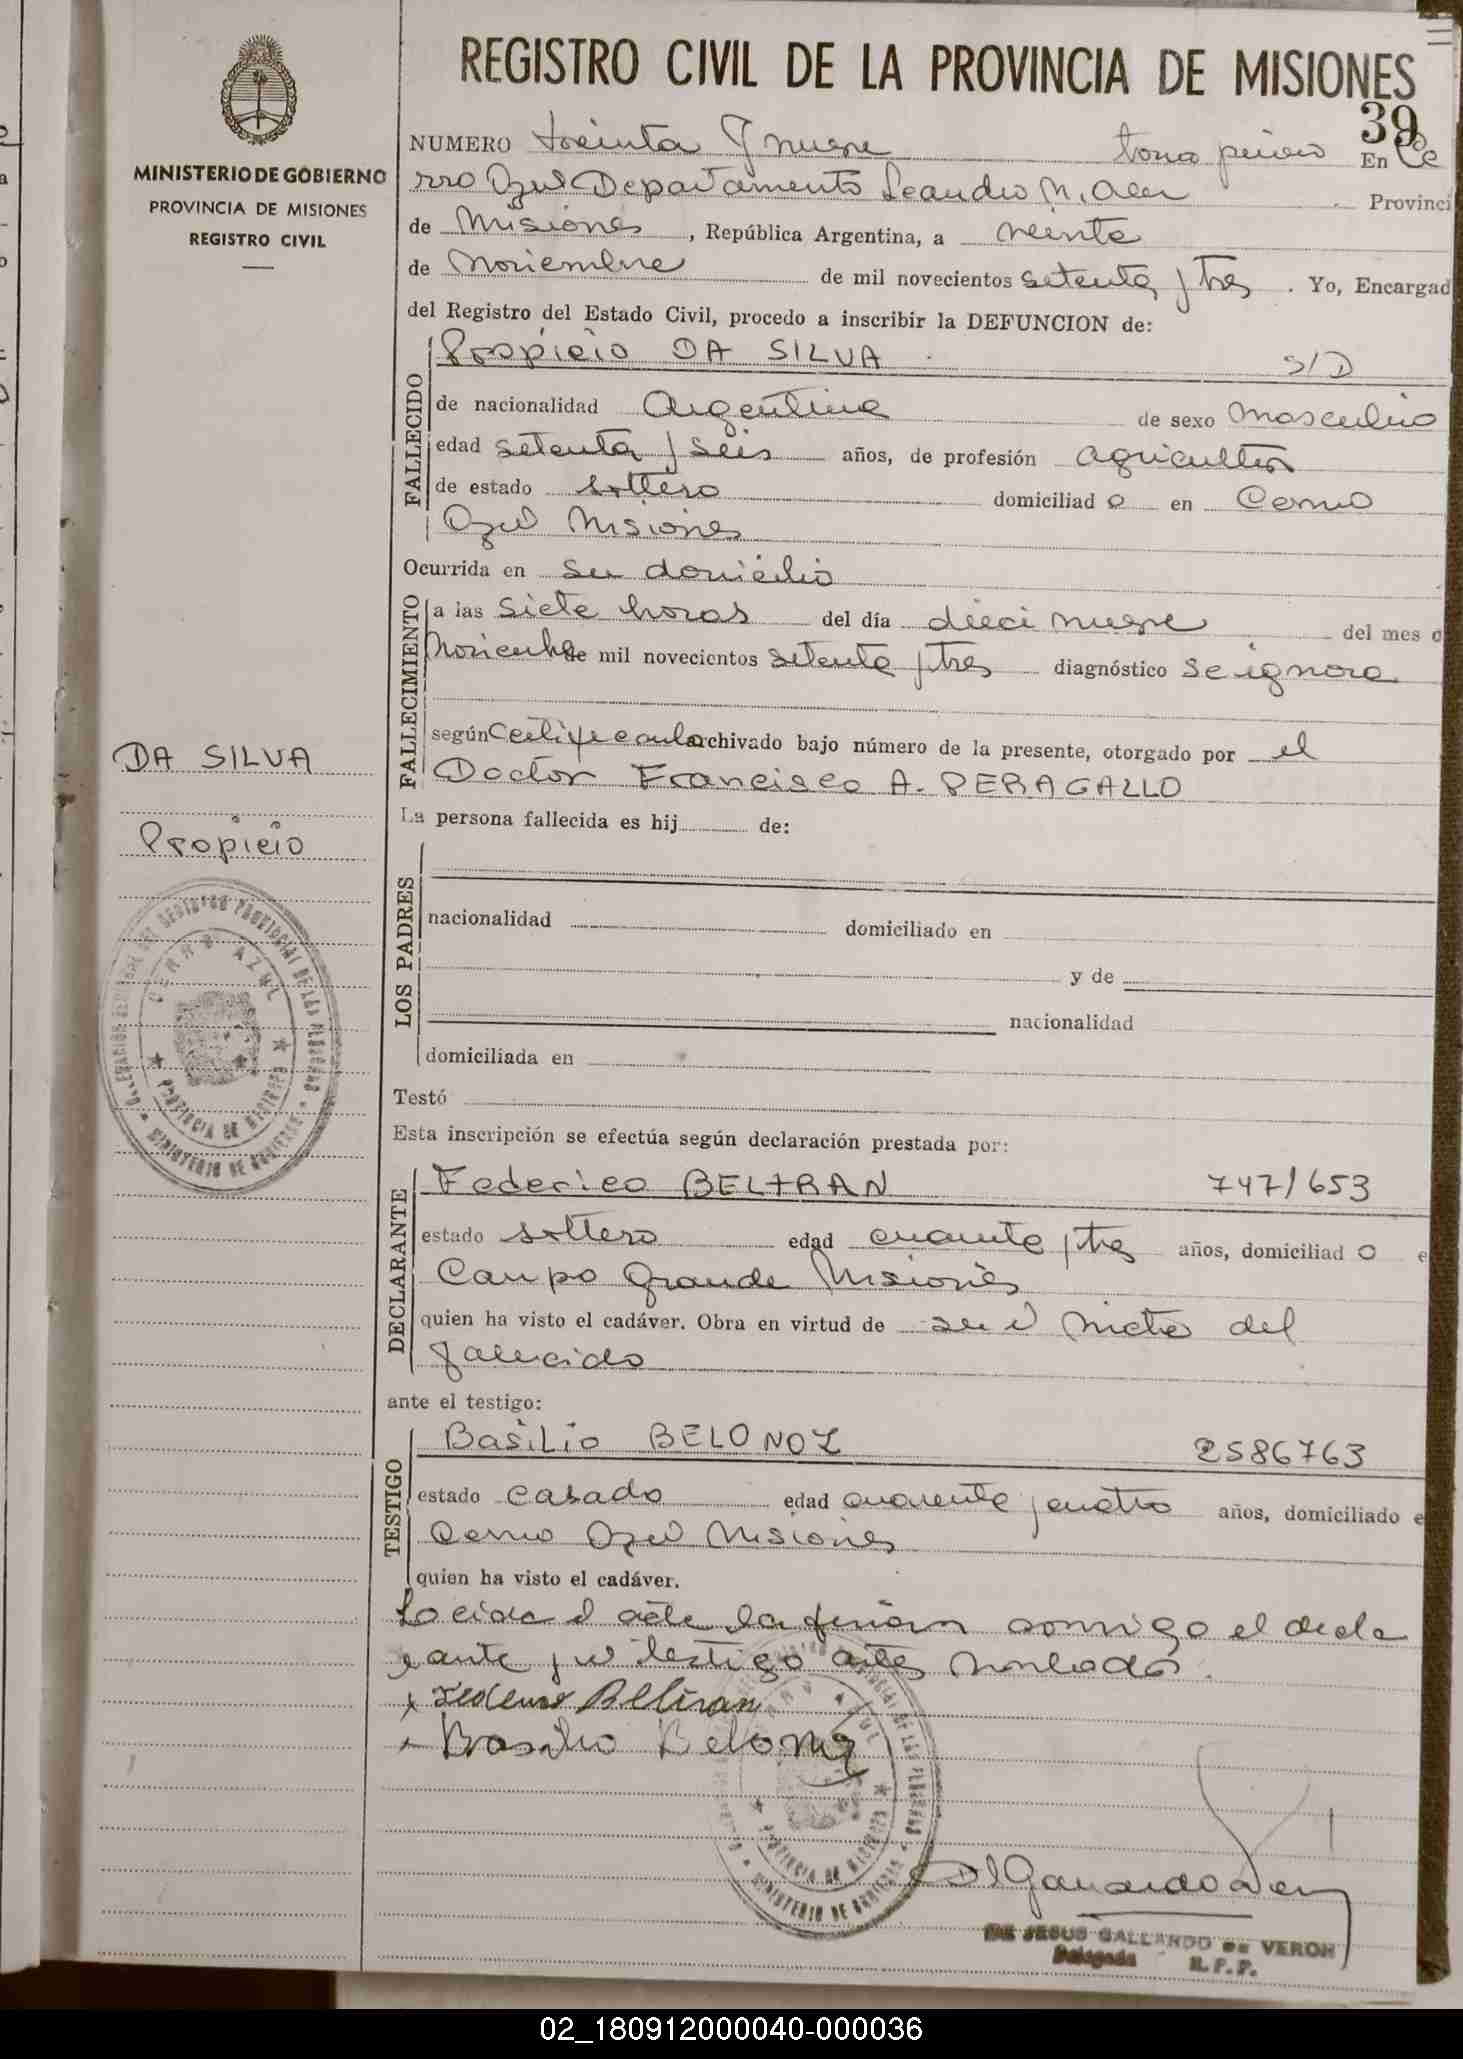 REGISTRO CIVIL DE LA PROVINCIA DE MISIONES
39
MINISTERIO DE GOBIERNO
PROVINCIA DE MISIONES
REGISTRO CIVIL
NUMERO treinta y nueve tomo primero En Ce
rro Azul Departamento Leandro N. Alem Provinci
de Misiones, República Argentina, a veinte
de Noviembre de mil novecientos setenta y tres. Yo, Encargad
del Registro del Estado Civil, procedo a inscribir la DEFUNCION de:
Propicio DA SILVA S/D
FALLECIDO
de nacionalidad Argentina de sexo Masculino
edad setenta y seis años, de profesión agricultor
de estado soltero domiciliad o en Cerro
Azul Misiones
Ocurrida en su domicilio
FALLECIMIENTO
a las siete horas del día dieci nueve del mes d
Noviembre de mil novecientos setenta y tres diagnóstico se ignora
según Certificado archivado bajo número de la presente, otorgado por el
Doctor Francisco A. PERAGALLO
DA SILVA
Propicio
La persona fallecida es hij de:
LOS PADRES
nacionalidad domiciliado en
y de
nacionalidad
domiciliada en
DELEGACION GENERAL DEL REGISTRO PROVINCIAL DE LAS PERSONAS
CERRO AZUL
PROVINCIA DE MISIONES
MINISTERIO DE GOBIERNO
Testó
Esta inscripción se efectúa según declaración prestada por:
DECLARANTE
Federico BELTRAN 747/653
estado soltero edad cuarenta y tres años, domiciliad o e
Campo Grande Misiones
quien ha visto el cadáver. Obra en virtud de ser el nieto del
fallecido
ante el testigo:
TESTIGO
Basilio BELONOZ 2586763
estado casado edad cuarenta y cuatro años, domiciliado e
Cerro Azul Misiones
quien ha visto el cadáver.
Leida el acta la firman conmigo el decla
rante y el testigo antes nombrados.
x Federico Beltran
x Basilio Belonoz
DE JESUS GALLARDO DE VERON
Delegada R.P.P.
02_180912000040-000036